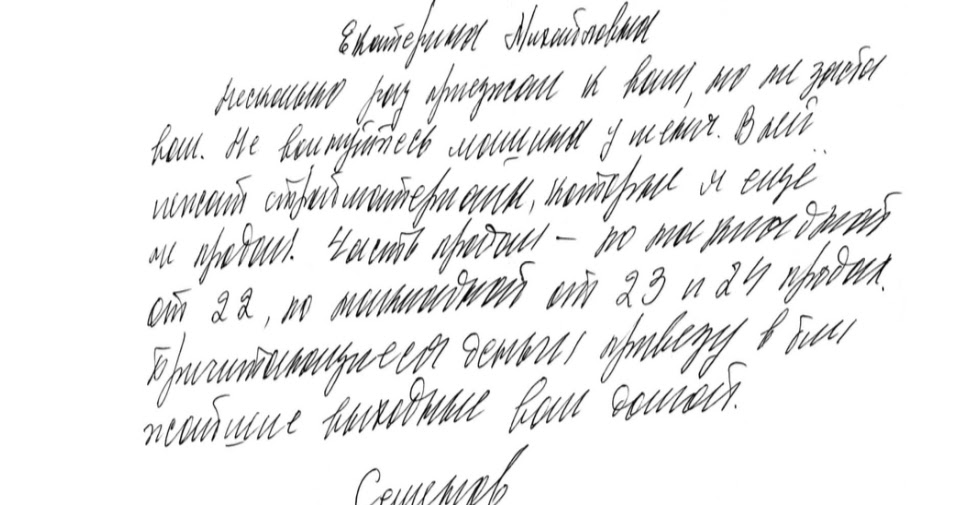 Екатерина Михайловна
Несколько раз приезжал к вам, но не заста
вал. Не волнуйтесь машина у меня. В ней
лежат стройматериалы, которые я еще
не продал. Часть продал – по накладной
от 22, по накладной от 23 и 24 продал.
Причитающиеся деньги привезу в бли
жайшие выходные вам домой.
Семенов